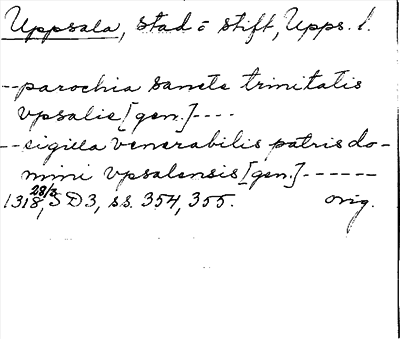 Uppsala, stad o stift, Upps. l.
--parochia sancte trinitatis
vpsalie [gen.]----
--sigilla venerabilis patris do-
mini vpsalensis [gen.]------
1318 28/3, SD3, ss. 354, 355. orig.